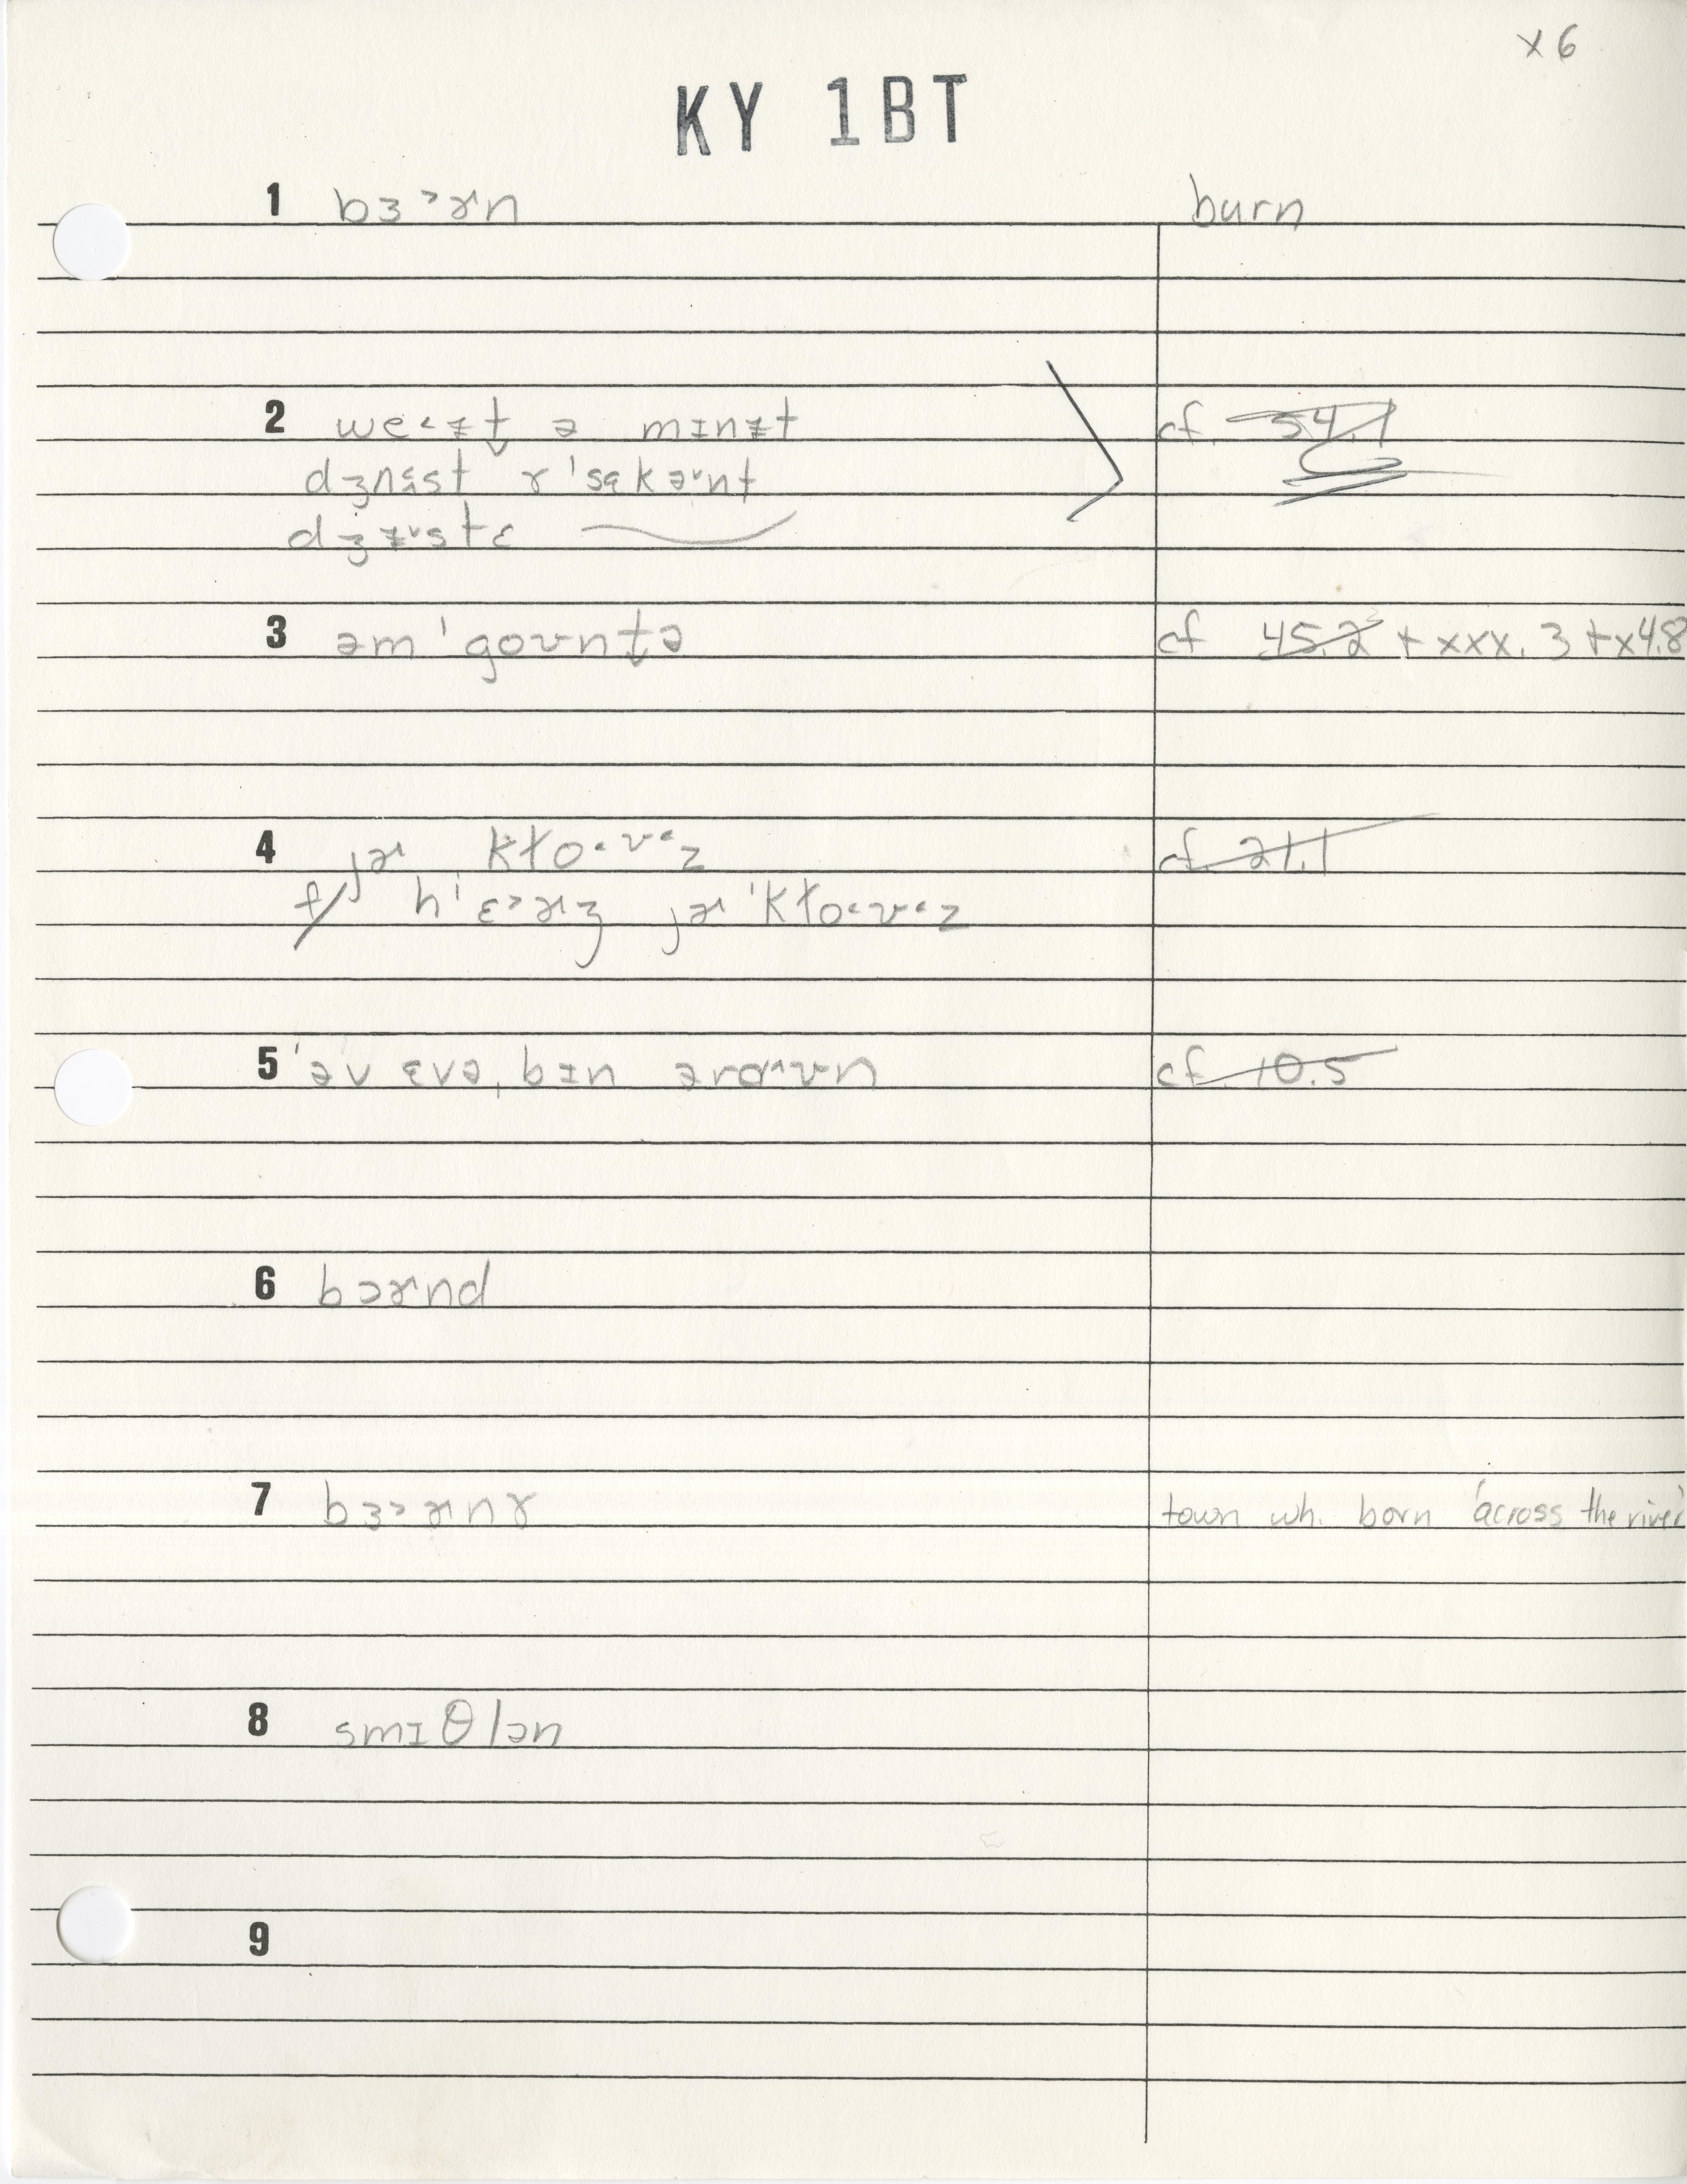 x 6
KY 1BT
1 bɜ˃ɚn burn
2 we˂ɪt̬ ə mɪnɪt cf. 54.1
dʒɪst ɚ ˈsɛkənt
dʒɪstə
3 əmˈgoʊnt̬ə cf 45.2 + xxx. 3 + x4.8
4 jɚ kɫo˂ʊ˂z cf. 21.1
f/ hˈɛ˃ɚz jɚ ˈkɫo˂ʊ˂z
5 ˈəv ɛvə, bɪn ərɑʊn cf. 10.5
6 bɔɚnd
7 bɜ˃ɚnɚ town wh. born 'across the river'
8 smɪθlən
9